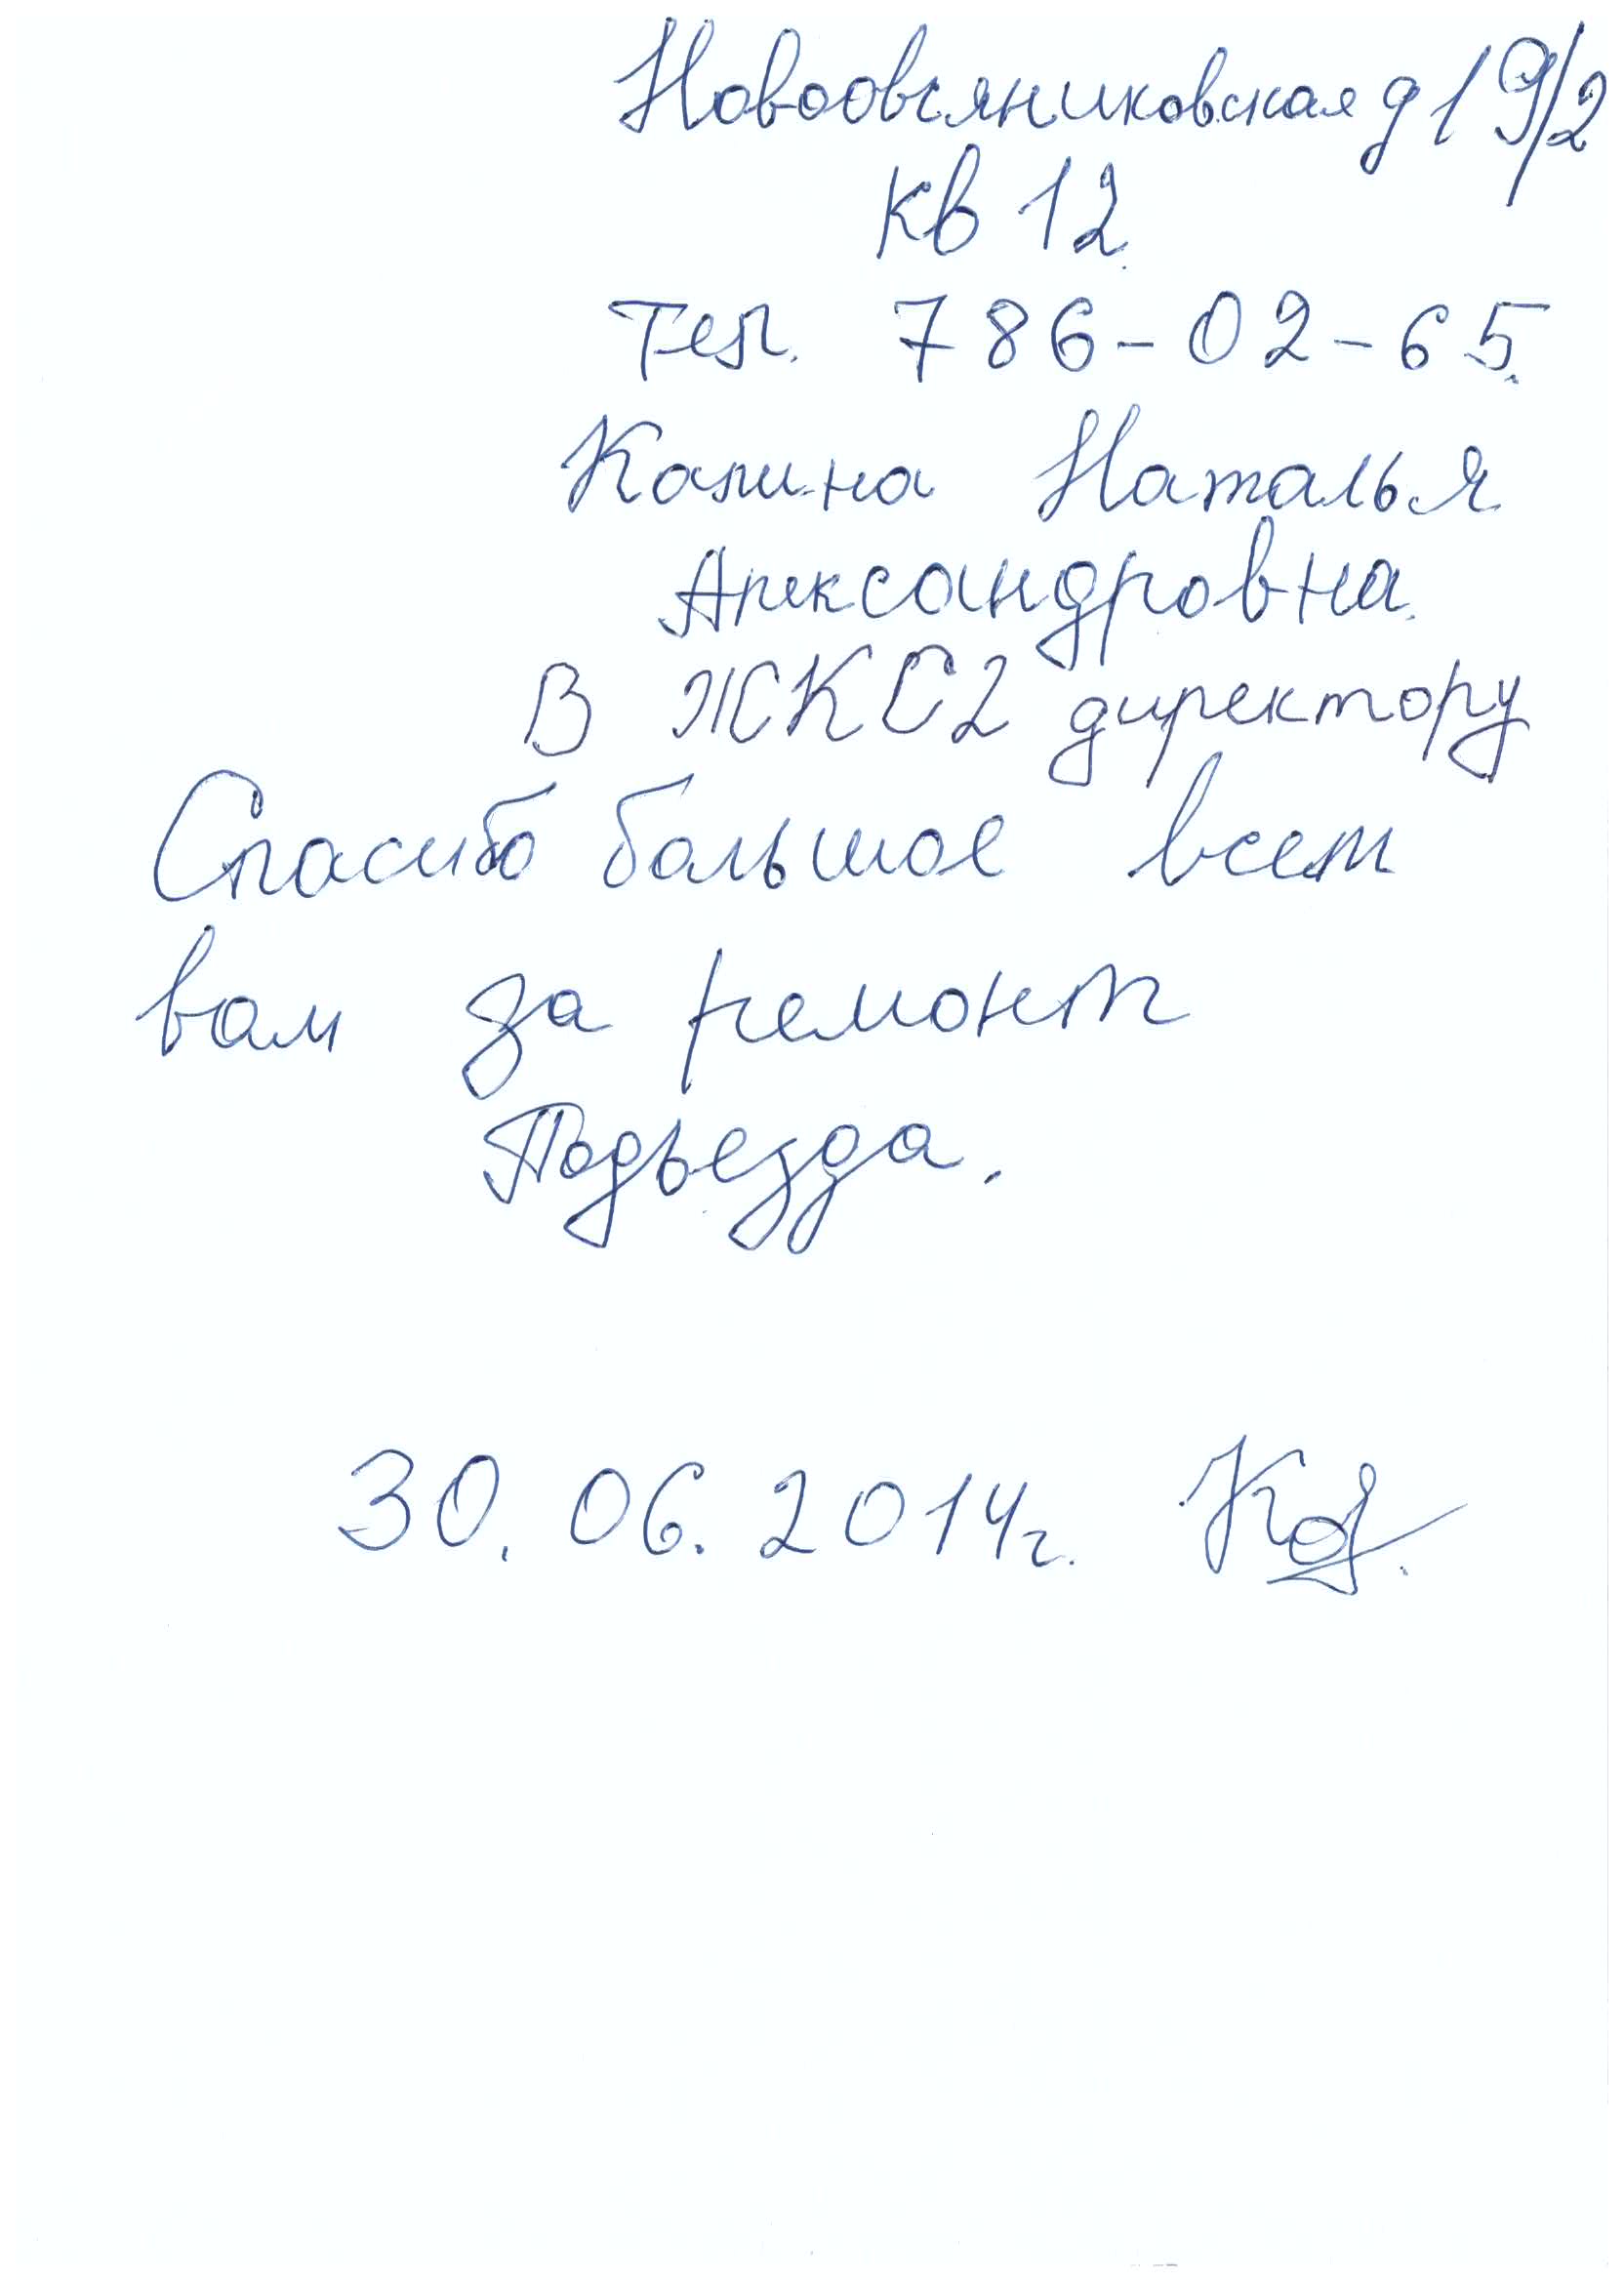 Новоовсяниковская д 19/2
кв 12.
Тел. 786-02-65.
Калина Наталья
Александровна.
В ЖКС2 директору
Спасибо большое всем
вам за ремонт
Подьезда.
30.06.2014г.